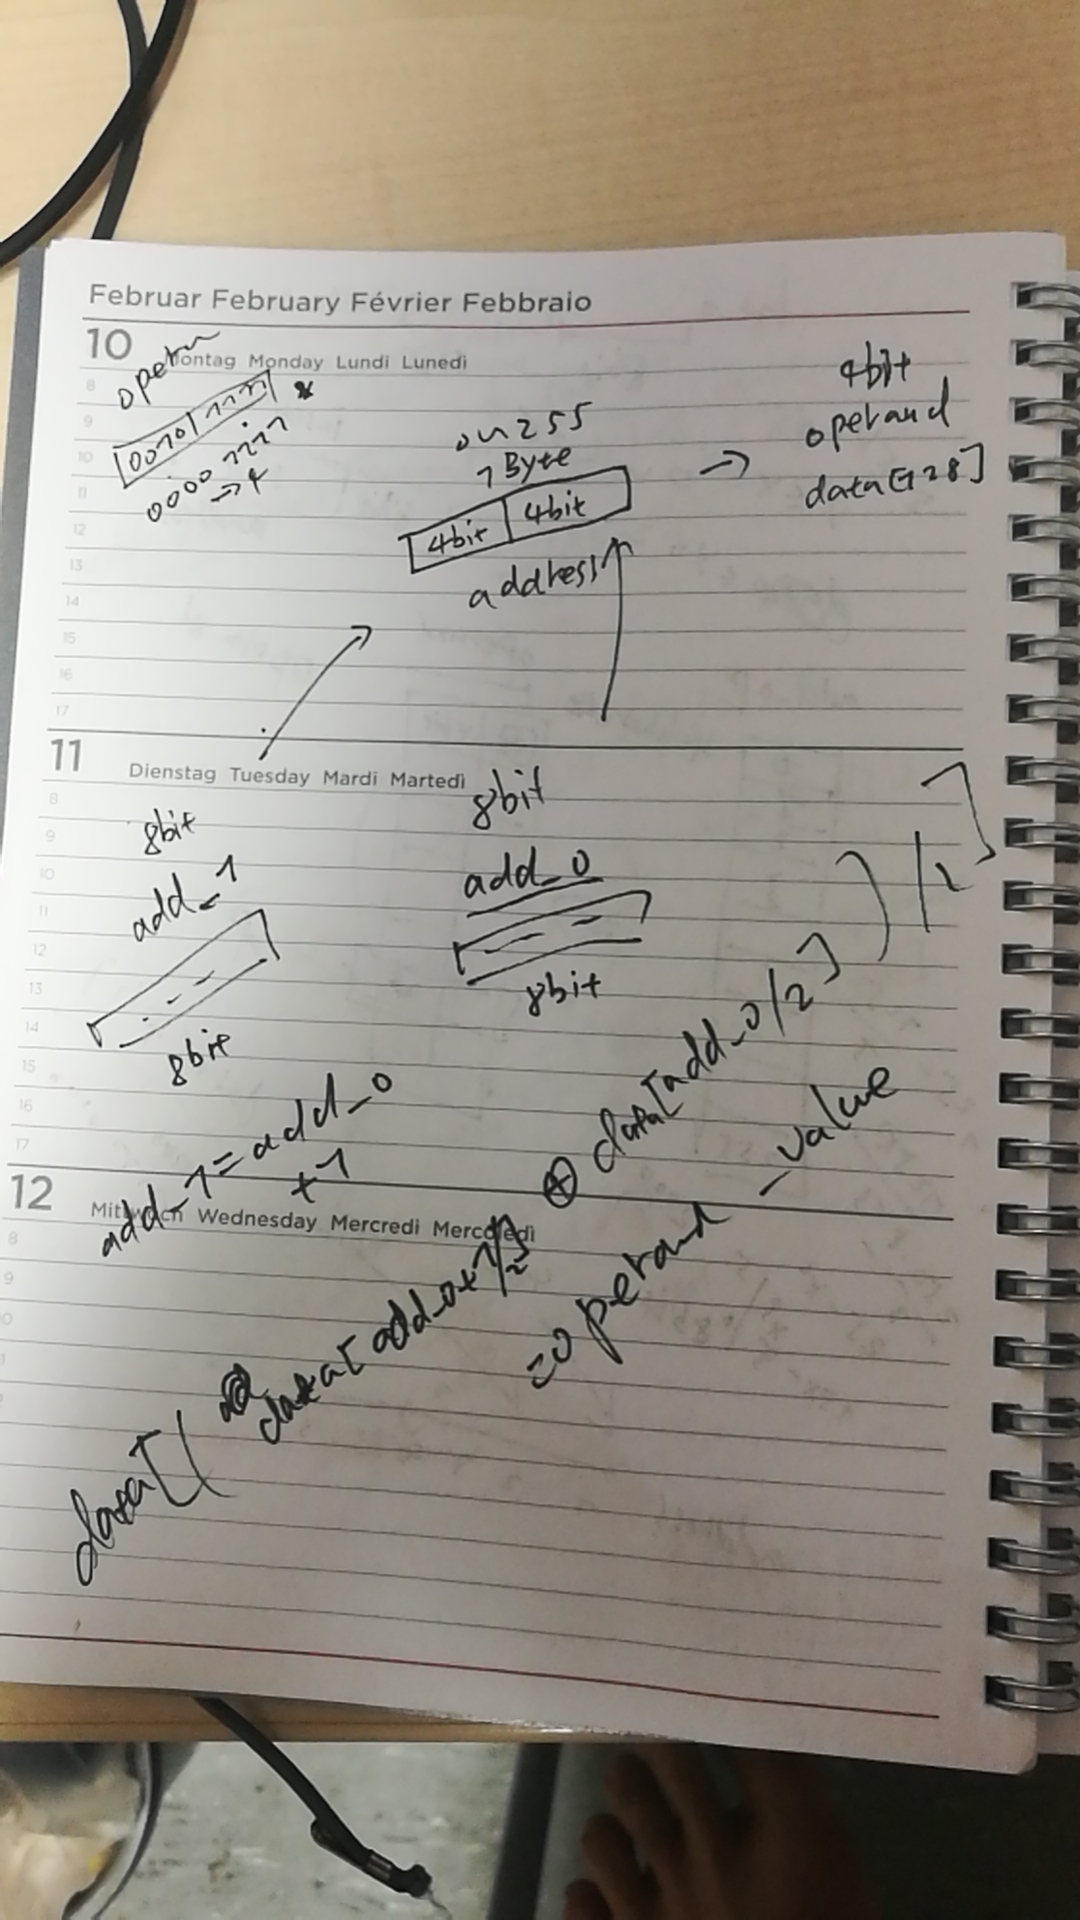 Februar February Février Febbraio
10 Montag Monday Lundi Lunedì
8
9
10
11
12
13
14
15
16
17
0010 1111
0000 1111
→ 4
1 Byte
4bit 4bit
address
→
4bit
operand
data[128]
11 Dienstag Tuesday Mardi Martedì
8
9
10
11
12
13
14
15
16
17
8bit
add_1
8bit
8bit
add_0
8bit
add_1 = add_0
+1
12 Mittwoch Wednesday Mercredi Mercoledì
8
9
data[( data[add_0+1/2] ⊗ data[add_0/2] ) /2 ]
= operand _value